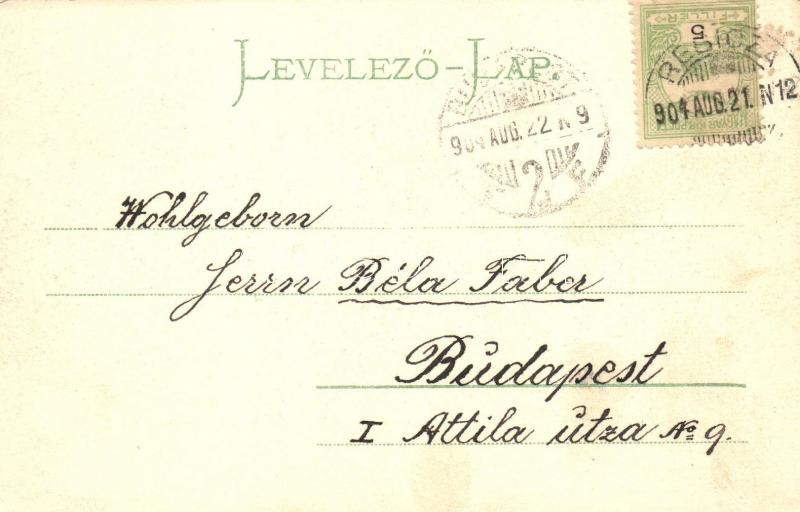 LEVELEZŐ-LAP.
FILLER
5
RESICZA
904 AUG. 21. N 12
904 AUG. 22 N 9
2
Wohlgeborn
Herrn Béla Faber
Budapest
I Attila útza No 9.